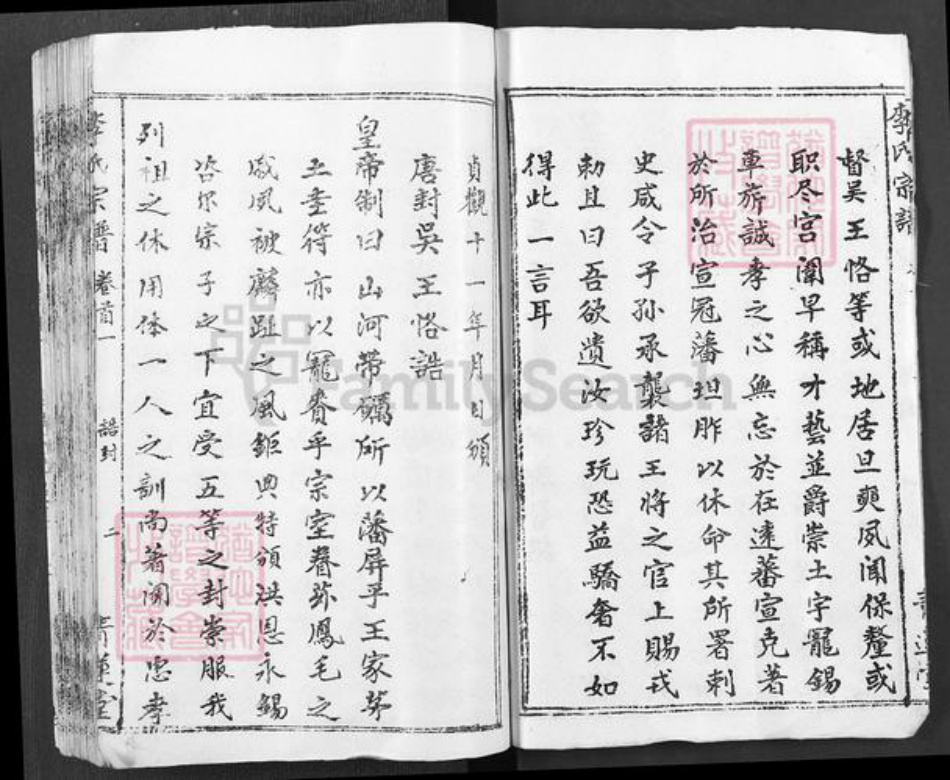 李氏宗譜
督吴王恪等或地居旦奭夙闻保釐或
职尽宫闈早稱才藝並爵崇土宇寵錫
車旂誠孝之心無忘於在遠蕃宣克著
於所治宣冠藩垣胙以休命其所署刺
史咸令子孫承襲諸王將之官上賜戎
勅且曰吾欲遺汝珍玩恐益驕奢不如
得此一言耳
貞觀十一年月日頒
唐封吳王恪誥
皇帝制曰山河带礪所以藩屏乎王家茅
土垂符亦以寵眷乎宗室眷茲鳳毛之
咸夙被麟趾之風鉅典特頒洪恩永錫
咨尔宗子之下宜受五等之封崇服我
列祖之休用体一人之訓尚著闻於忠孝
李氏宗譜 卷首一 誥封 二
FamilySearch